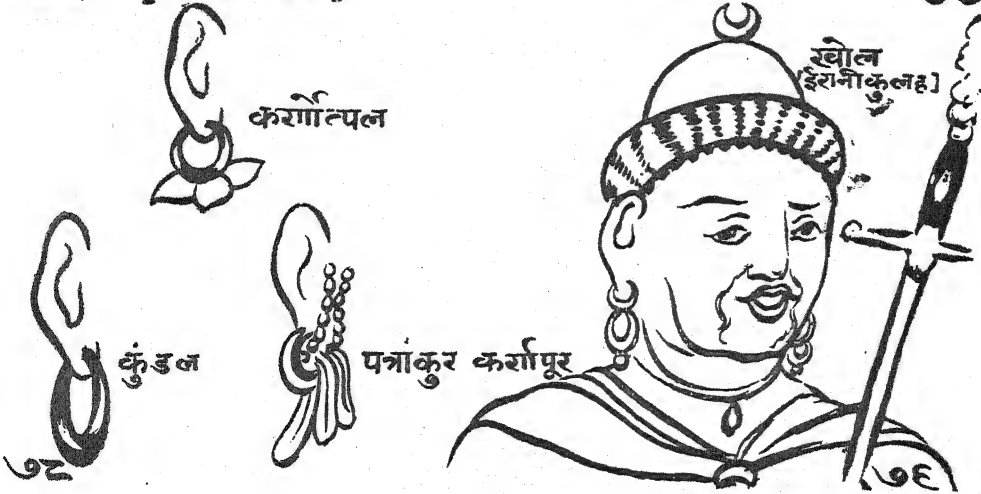 कर्णोत्पल
खोल
[ईरानी कुलह]
कुंडल
पत्रांकुर कर्णपूर
७८
७९